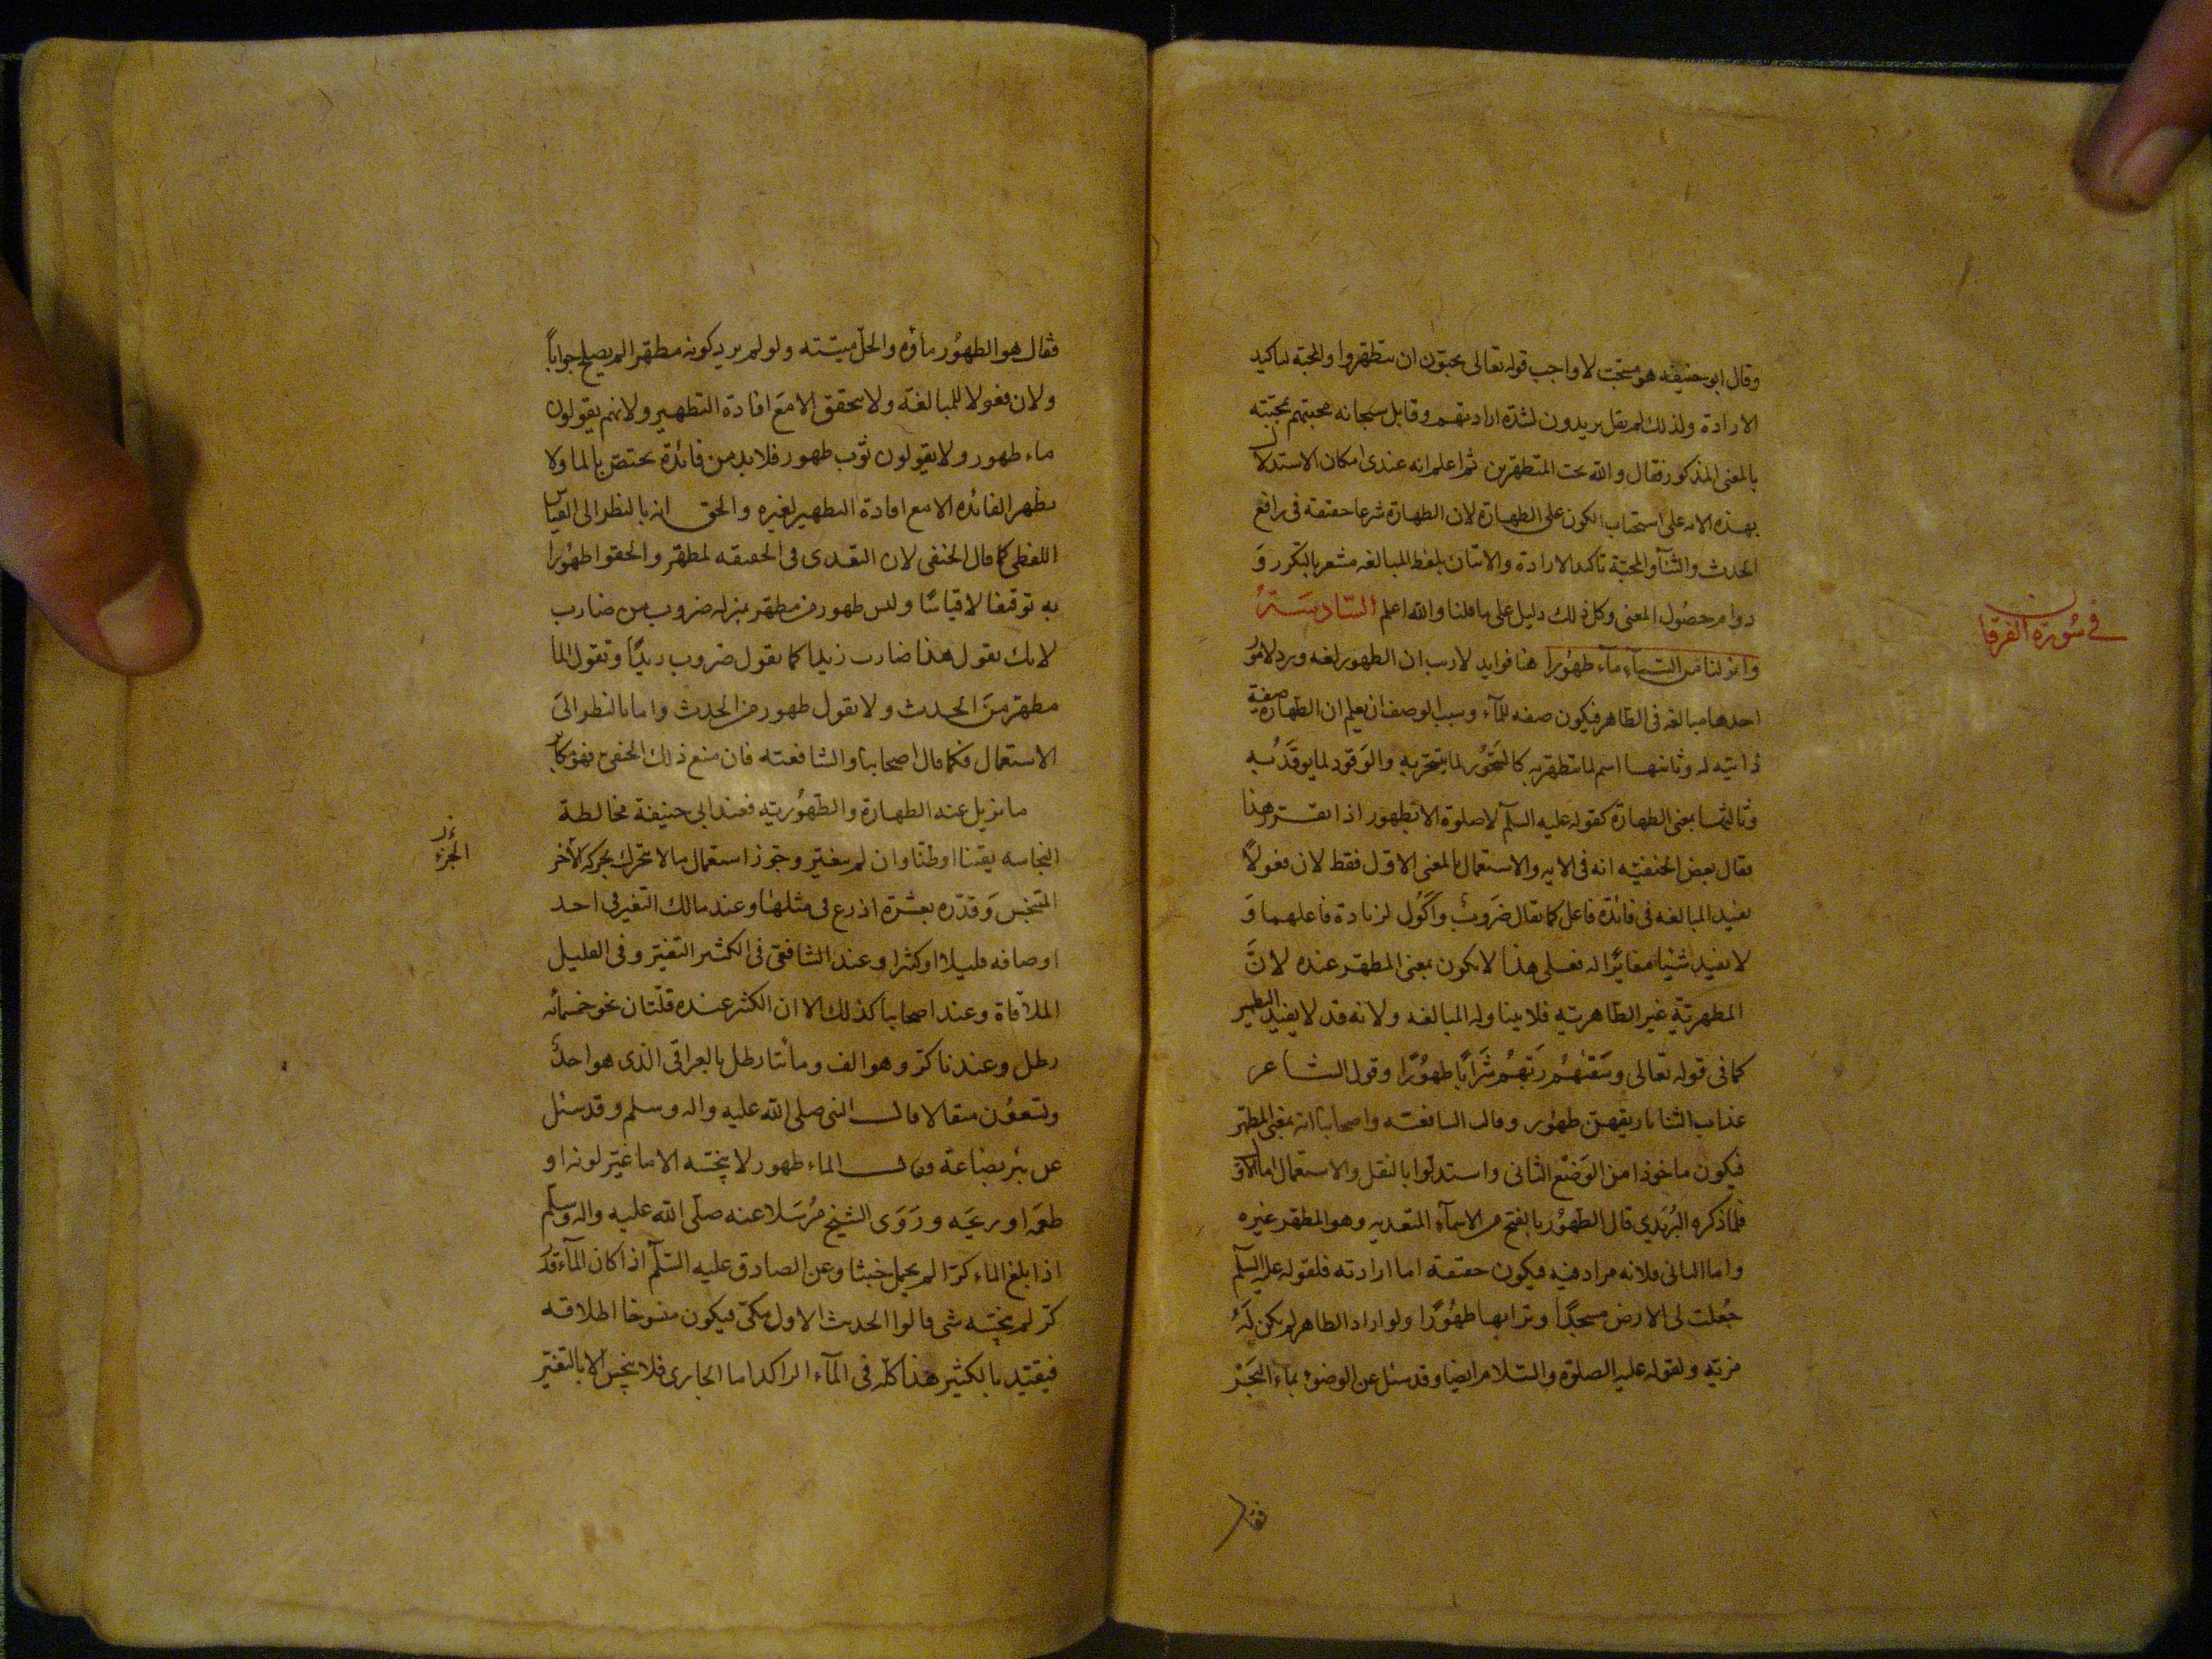 وقال ابو حنيفه هو مستحب لا واجب قوله تعالى يحبون ان يتطهروا والمحبة تاكيد
الارادة ولذلك لم يقل يريدون لشدة ارادتهم وقابل سبحانه محبتهم بمحبته
بالمعنى المذكور فقال والله يحب المتطهرين ثم اعلم انه عندى امكان الاستدلال
بهذه الايه على استحباب الكون على الطهارة لان الطهارة شرعا حقيقة فى رافع
الحدث والثنآ والمحبة تاكيد الارادة والاتيان بلفظ المبالغه مشعر بالتكرر وَ
دوام حصُول المعنى وكل ذلك دليل على ما قلنا والله اعلم السّادسَة
في سُورة الفرقان
وانزلنا من السمآءِ مآء طهُورا هنا فوايد لا ريب ان الطهور لغه ورد لامُور
احدها مبالغه فى الطاهر فيكون صفه للمآء وسبب الوصف ان يعلم ان الطهارة صفة
ذاتيه له وثانيها اسم لما يتطهر به كالسَّحُور لما يتسحّر به والوَقود لما يوقَد به
وثالثها بمعنى الطهارة كقوله عليه السلم لا صلوة الا بطهور اذا تقرر هذا
فقال بعض الحنفيّه انه فى الايه والاستعمال بالمعنى الاوّل فقط لان فعولاً
يفيد المبالغه فى فائدة فاعل كما يقال ضَروبٌ واَكُول لزيادة فاعلهما وَ
لا يفيد شيئا مغايرًا له فعلى هذا لا يكون بمعنى المطهّر عنده لانَّ
المطهريّةِ غير الطّاهريّةِ فلا يتناوله المبالغه ولانه قد لا يفيد التطهير
كما فى قوله تعالى وسَقٰيٰهُم رَبّهُم شَرَابًا طهُورًا وقول الشاعر
عذاب الثنايا ريقهنّ طهُور وقالت الشافعية واصحابنا انه بمعنى المطهّر
فيكون ماخوذا من الوَضْع الثانى واستدلّوا بالنقل والاستعمال اما الاوّل
فلما ذكره التّرمذي قال الطّهُور بالفتح من الاسمآءِ المتعديه وهو المطهّر غيره
واما الثانى فلانه مراد فيه فيكون حقيقة اما ارادته فلقوله عليه السلّم
جُعلت لى الارض مسجدًا وترابها طهُورًا ولو اراد الطاهر لم يكن لَهُ
مزيّه ولقوله عليه الصلوة والسّلام ايضا وقد سئل عن الوضوء بماء البَحْر
فقال
فقال هو الطهُور مآؤه والحلّ ميتته ولو لم يرد كونه مطهّرا لم يصلح جواباً
ولان فعولا للمبالغة ولا يتحقق الا مع افادة التطهير ولانهم يقولون
ماء طهور ولا يقولون ثوب طهور فلا بد من فائدة تختصّ بالما ولا
تظهر الفائده الا مع افادة التطهير لغيره والحق انه بالنظر الى القياس
اللفظى كما قال الحنفى لان التعدى فى الحقيقه لمطهّر والحقوا طهُورا
به توقيفا لا قياسًا وليس طهور من مطهّر بمنزله ضروب من ضارب
لانك تقول هذا ضارب زيدا كما تقول ضروب زيدًا وتقول الما
مطهّر منَ الحدث ولا تقول طهور من الحدث واما بالنظر الىَ
الاستعمال فكما قال اصحابنا والشافعيه فان منع ذلك الحنفىّ فهو مكابر
ما يزيل عنه الطهارة والطّهُوريّه فعند ابى حنيفة مخالطة
النجاسه يقينا او ظنّا وان لم يتغيّر وجّوز استعمال ما لا يتحرك بحركه الآخر
الجزء
المتنجّس وَقدّره بعشرة اذرع فى مثلها وعند مالك التغير فى احد
اوصافه قليلا او كثيرا وعند الشافعى فى الكثير التغيّر وفى القليل
الملاقاة وعند اصحابنا كذلك الا ان الكثير عنده قلّتان نحو خمسمائه
رطل وعندنا كرّ وهو الف ومائتا رطل بالعراقى الذى هو احدٌ
وتسعُون مثقالا قالت النبى صلى الله عليه واله وسلم وقد سئل
عن بئر بضاعة فقالـ الماء طهور لا ينجّسه الا ما غيّر لونه او
طعمَه او ريحَه ورَوَى الشيخ مُرسَلا عنه صلّى الله عليه واله وسلّم
اذا بلغ الماء كرّا لم يحمل خبثا وعن الصادق عليه السّلّم اذا كان المآء قدَر
كرّ لم ينجّسه شى قالوا الحديث الاول مكىّ فيكون منسوخا اطلاقه
فيقيّد بالكثير هذا كلّه فى المآء الراكد اما الجارى فلا ينجّس الا بالتغيّر